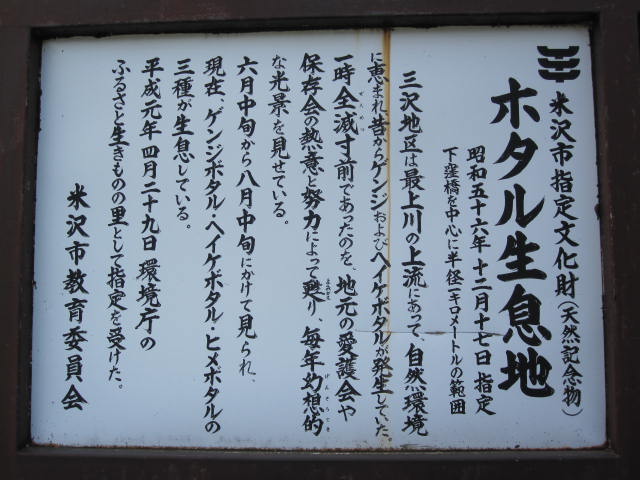 米沢市指定文化財(天然記念物)
ホタル生息地
昭和五十六年十二月十七日指定
下窪橋を中心に半径一キロメートルの範囲
三沢地区は最上川の上流にあって、自然環境
に恵まれ、昔からゲンジおよびヘイケボタルが発生していた。
一時全滅寸前であったのを、地元の愛護会や
保存会の熱意と努力によって甦り、毎年幻想的
な光景を見せている。
六月中旬から八月中旬にかけて見られ、
現在、ゲンジボタル・ヘイケボタル・ヒメボタルの
三種が生息している。
平成元年四月二十九日環境庁の
ふるさと生きものの里として指定を受けた。
米沢市教育委員会